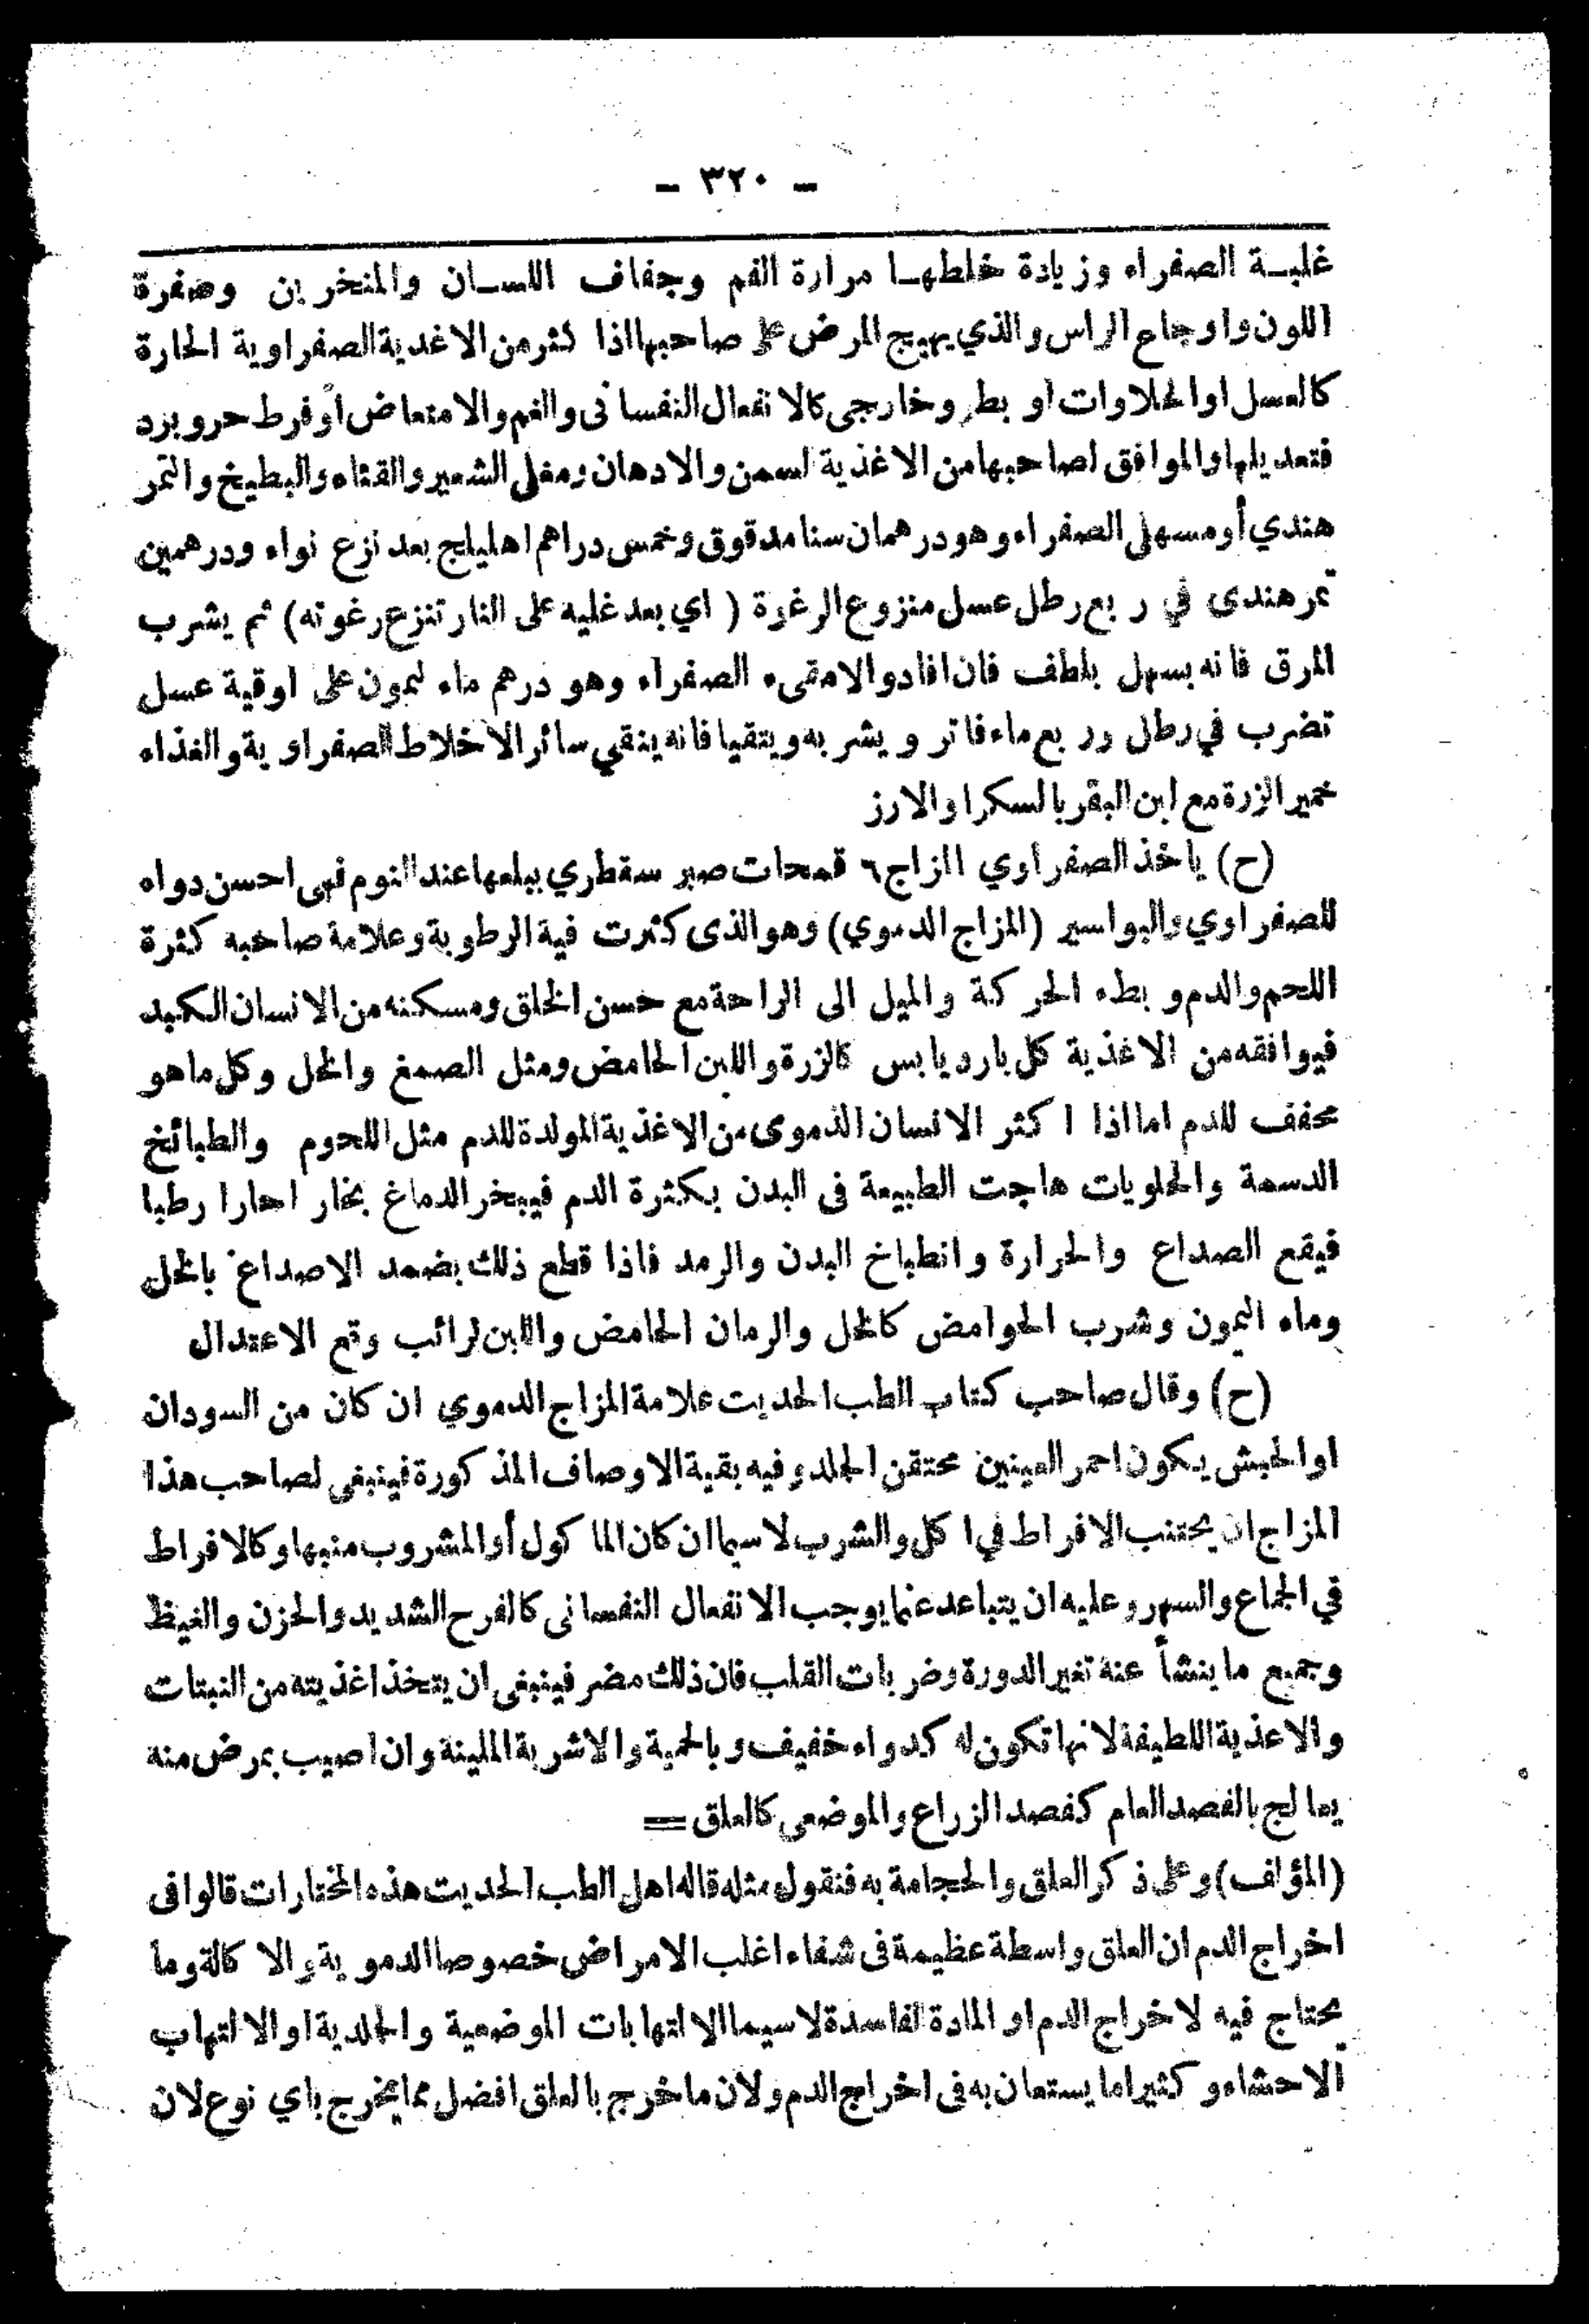 - ٣٢٠ -
غلبة الصفراء وزيادة خلطها مرارة الفم وجفاف اللسان والمنخرين وصفرة
اللون واوجاع الراس والذي يهيج المرض على صاحبها اذا كثر من الاغدية الصفراوية الحارة
كالعسل او الحلاوات او بطرو خارجى كالانفعال النفسانى والغم والامتعاض أو فرط حر وبرد
فتعديلها والموافق لصاحبها من الاغذية لسمن والادهان ومغلى الشعير والقثاء والبطيخ والتمر
هندي أو مسهل الصفراء وهو درهمان سنا مدقوق وخمس دراهم اهليلج بعد نزع نواء ودرهمين
تمر هندى في ربع رطل عسل منزوع الرغوة ( اي بعد غليه على النار تنزع رغوته) ثم يشرب
المرق فانه يسهل بلطف فان افاد والا مقىء الصفراء وهو درهم ماء ليمون على اوقية عسل
تضرب في رطل وربع ماء فاتر ويشربه ويتقيا فانه ينقي سائر الاخلاط الصفراوية والغذاء
خمير الزرة مع لبن البقر بالسكر او الارز
(ح) ياخذ الصفراوي المزاج ٦ قمحات صبر سقطري يبلعها عند النوم فهى احسن دواء
للصفراوي والبواسير (المزاج الدموي) وهو الذى كثرت فية الرطوبة وعلامة صاحبه كثرة
اللحم والدم وبطء الحركة والميل الى الراحة مع حسن الخلق ومسكنه من الانسان الكبد
فيوافقه من الاغذية كل بارد يابس كالزرة واللبن الحامض ومثل الصمغ والخل وكل ما هو
مخفف للدم اما اذا اكثر الانسان الدموى من الاغذية المولدة للدم مثل اللحوم والطبائخ
الدسمة والحلويات هاجت الطبيعة فى البدن بكثرة الدم فيبخر الدماغ بخار احارا رطبا
فيقع الصداع والحرارة وانطباخ البدن والرمد فاذا قطع ذلك بضمد الاصداع بالخل
وماء اليمون وشرب الحوامض كالخل والرمان الحامض واللبن لرائب وقع الاعتدال
(ح) وقال صاحب كتاب الطب الحديت علامة المزاج الدموي ان كان من السودان
او الحبش يكون احمر العينين محتقن الجلد وفيه بقية الاوصاف المذكورة فينبغى لصاحب هذا
المزاج ان يجتنب الافراط في اكل والشرب لاسيما ان كان الماكول أو المشروب منبها وكالافراط
في الجماع والسهر وعليه ان يتباعد عنما يوجب الانفعال النفسانى كالفرح الشديد والحزن والغيظ
وجميع ما ينشأ عنة تغير الدورة وضربات القلب فان ذلك مضر فينبغى ان يتخذ اغذيته من النبتات
والاعذية اللطيفة لانها تكون له كدواء خفيف وبالحمية والاشربة الملينة وان اصيب بمرض منه
يعالج بالفصد العام كفصد الزراع والموضعى كالعلق =
(المؤلف) وعلى ذكر العلق والحجامة به فنقول مثله قاله اهل الطب الحديت هذه المختارات قالوا فى
اخراج الدم ان العلق واسطة عظيمة فى شفاء اغلب الامراض خصوصا الدموية والا كالة وما
يحتاج فيه لاخراج الدم او المادة لفاسدة لاسيما الالتهابات الموضعية والجلدية او الالتهاب
الاحشاء وكثيرا ما يستعان به فى اخراج الدم ولان ما خرج بالعلق افضل مما يخرج باي نوع لان